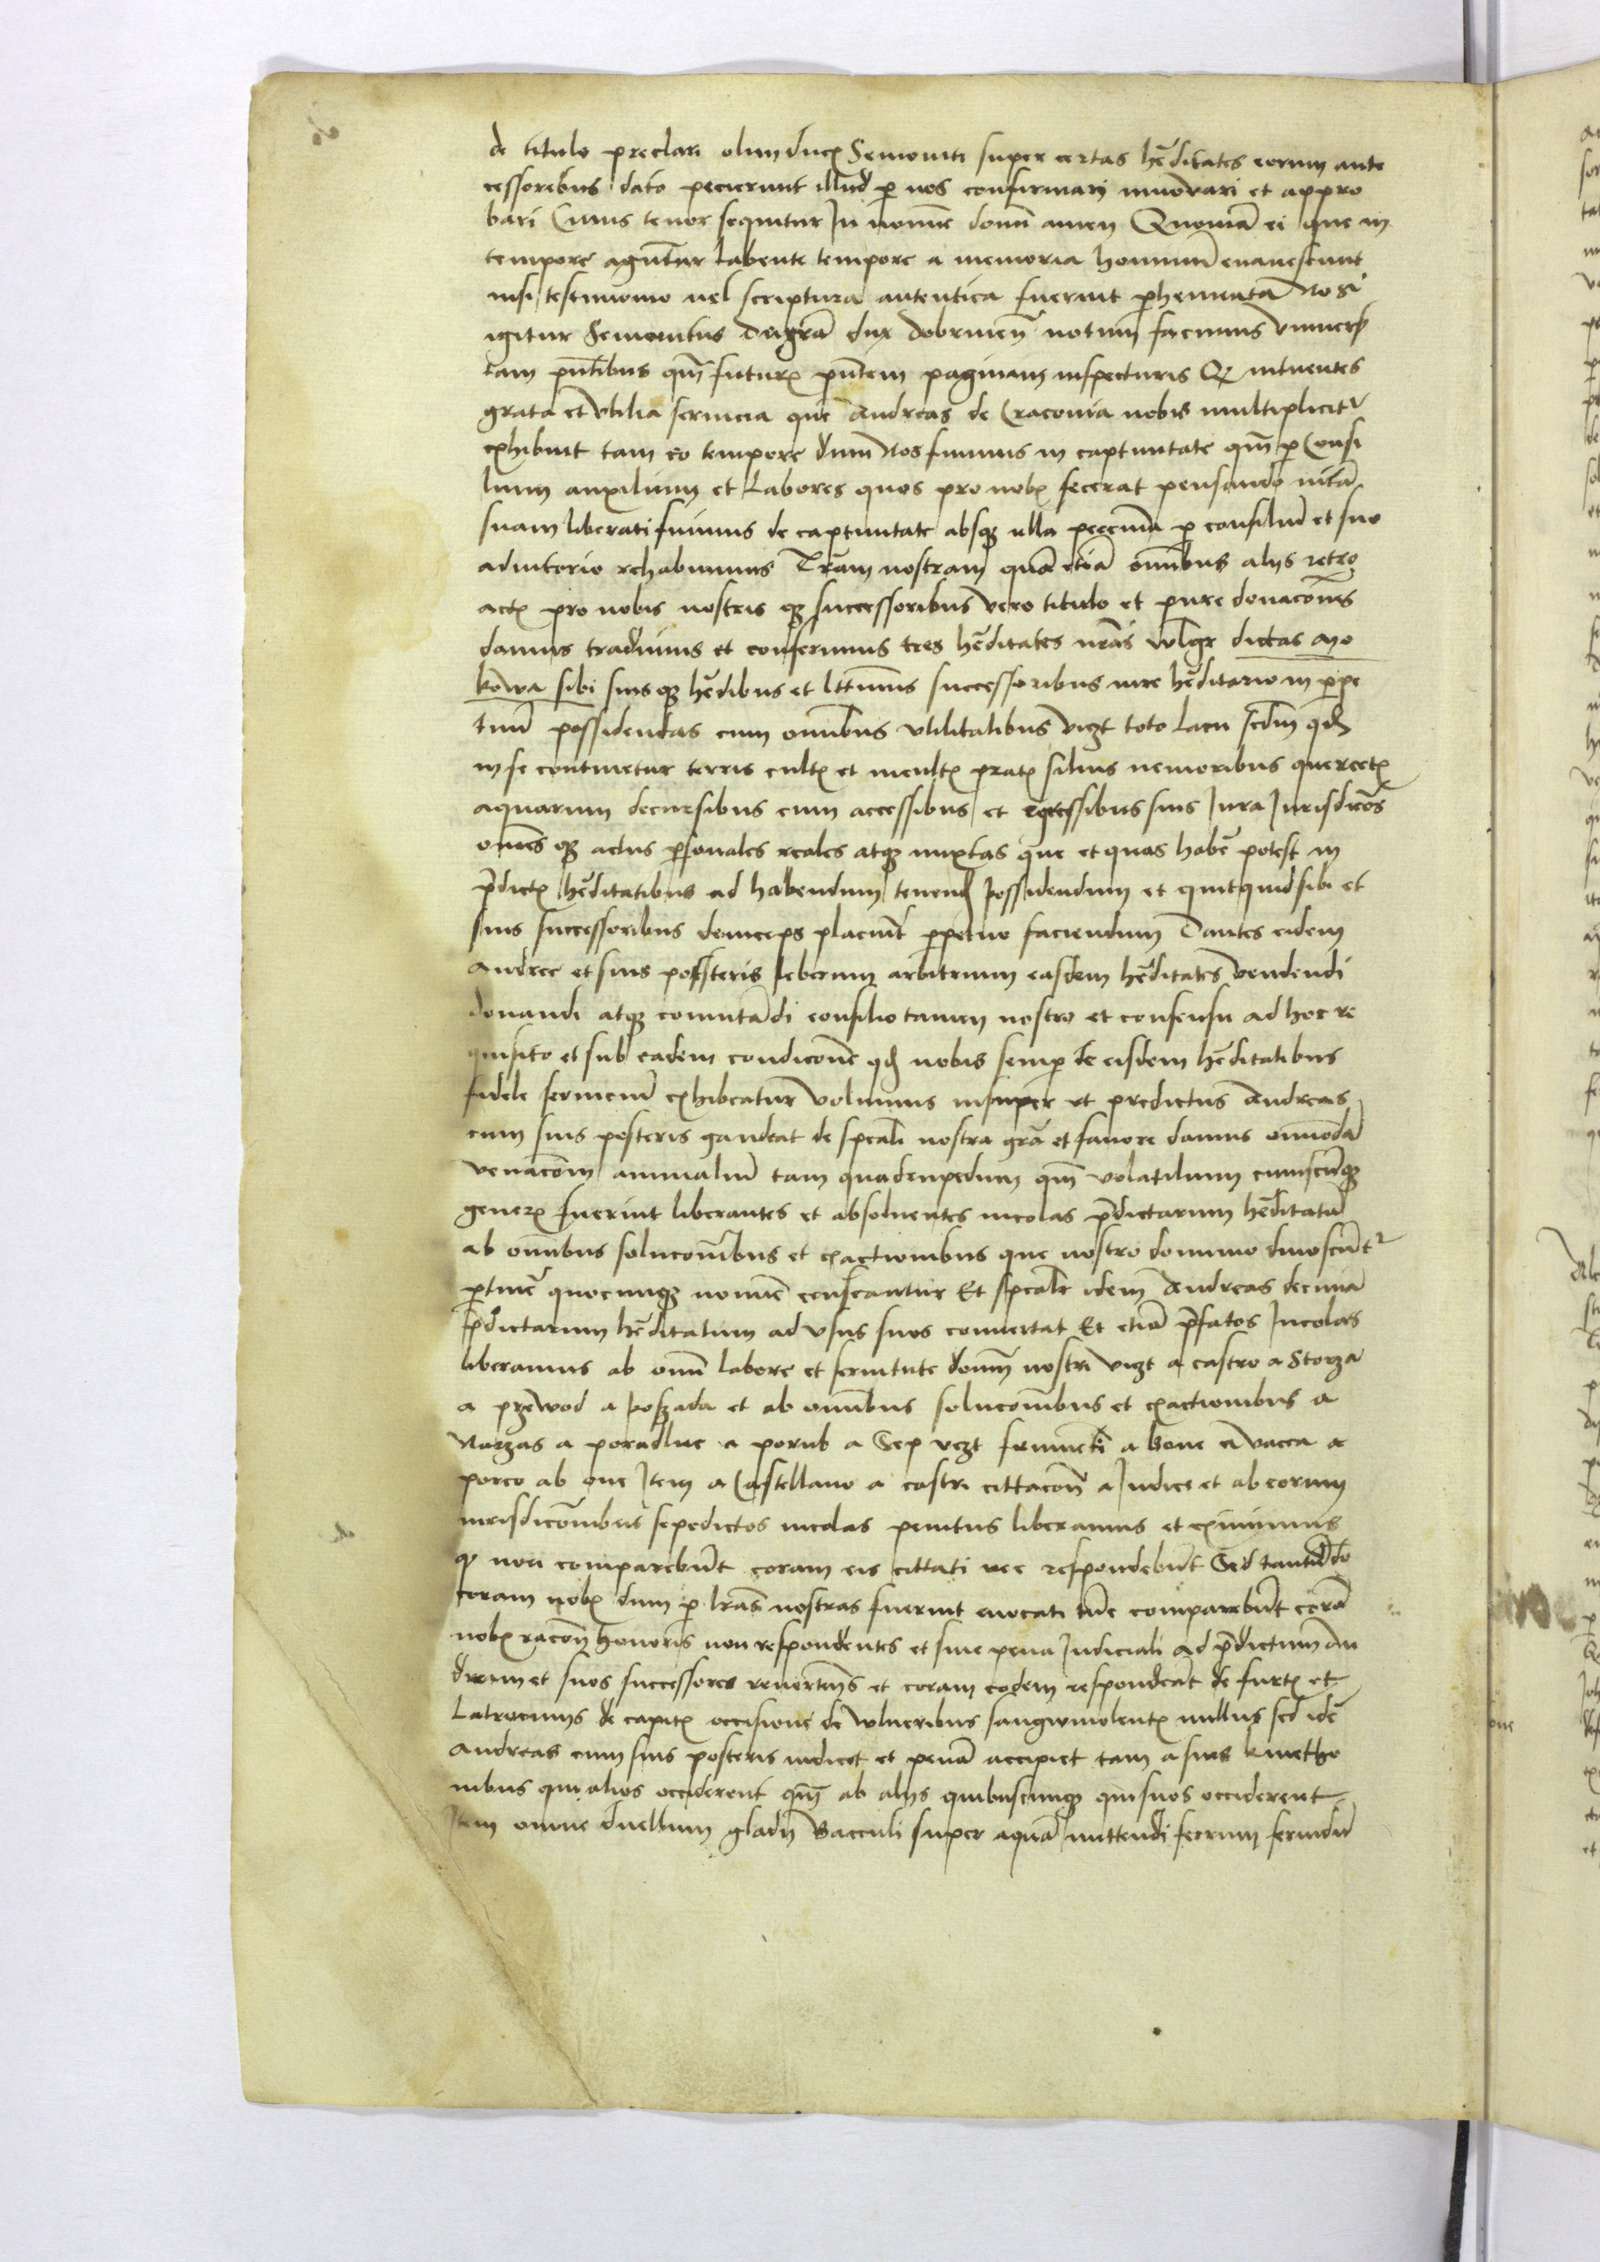 de titulo preclari olim ducꝭ Semouiti super certas hēditates eorum ante
cessoribus dato pecierunt illud ꝑ nos confirmari innovari et appro
bari Cuius tenor sequitur In nomine domī amen Quoniā ei que in
tempore agūtur labente tempore a memoria hominū euanescunt
nisi testimonio uel scriptura autentica fuerint ꝑhennata Nos
igitur Semouitus dei grā dux dobrinenß notum facimus vniuerß
tam pn̄tibus qm̄ futurꝭ pn̄tem paginam inspecturis Qꝫ intuentes
grata et vtilia seruicia que Andreas de Cracouia nobis multiplicitr
exhibuit tam eo tempore dum nos fuimus in captiuitate qm̄ ꝑ Consi
lium auxilium et labores quos pro nobꝭ fecerat pensando uitā
suam liberati fuimus de captiuitate absqꝫ ulla peccunia ꝑ consiliū et suo
adiutorio rehabuimus Trām nostram quā etiā omībus alijs retro
actꝭ pro nobis nostris qꝫ successoribus vero titulo et pure donacōnis
damus tradimus et conferimus tres hēditates nrās vlgr dictas mo
kowa sibi suis qꝫ hēdibus et lttimis successoribus iure hēditario in ꝑpe
tuū possidendas cum omībus vtilitatibus vizt toto lacu scdm qd
in se continetur terris cultꝭ et incultꝭ pratꝭ siluis nemoribus quercetꝭ
aquarum decursibus cum accessibus et egressibus suis Jura Jurisdicōes
omēs qꝫ actus ꝑsonales reales atqꝫ mixtas que et quas habē potest in
p̄dictꝭ hēditatibus ad habendum tenend possidendum et quitquid sibi et
suis successoribus deinceps placuīt ꝑpetuo faciendum Dantes eidem
Andree et suis possteris leberum arbitrium easdem hēditates vendendi
donandi atqꝫ comutādi consilio tamen nostro et consensu ad hoc re
quisito et sub eadem condicōne qd nobis semꝑ de eisdem hēditatibus
fidele seruiciū exhibeatur volumus insuper vt predictus Andreas
cum suis posteris gaudeat de spcāli nostra grā et fauore damus omīodā
venacōm animaliū tam quadrupedum qm̄ volatilium cuiuscūqꝫ
generꝭ fuerint liberantes et absoluentes incolas p̄dictarum hēditatū
ab omībus solucōibus et exactionibus que nostro dominio dinoscūtr
ꝑtinē quocumqꝫ nomīe censeantur Et spcālr idem Andreas decimā
p̄dictarum hēditatum ad vsus suos conuertat Et etiā p̄fatos Incolas
liberamus ab omī labore et seruitute domī nostri vizt a castro a Stoza
a przewod a poszada et ab omībus solucōibus et exactionibus a
Narzas a poradlne a porub a Sep vzt frumēti a boue a vacca a
porco ab oue Item a Castellano a castri cittacōn a Judice et ab eorum
iurisdicōibus sepedictos incolas penitus liberamus et eximimus
qꝫ non comparebūt coram eis cittati nec respondebūt Sed tantūdo
coram nobꝭ dum ꝑ lrās nostras fuerint euocati tūc comparebūt corā
nobꝭ racōn honoris non respondentes et sine pena Judiciali ad p̄dictum An
dream et suos successores reuertentes et coram eodem respondeāt de furtꝭ et
latrociniis de capitꝭ occisione de vulneribus sangwinolentꝭ nullus sed idē
Andreas cum suis posteris iudicet et penā accipiet tam a suis kmetho
nibus qui alios occiderent qm̄ ab alijs quibuscumqꝫ qui suos occiderent
Item omne duellum gladii Bacculi super aquā mittendi ferrum feruidū